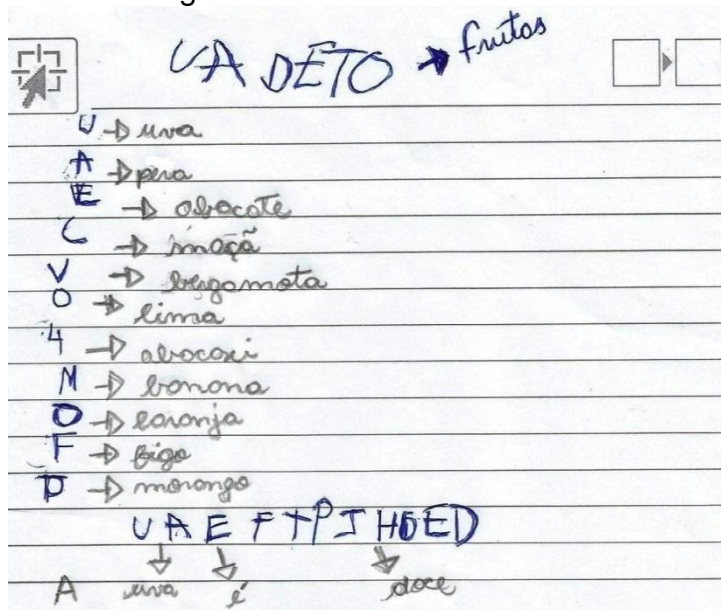 UA DETO → frutas
U → uva
A → pera
E → abacate
C → maçã
V → bergamota
O → lima
4 → abacaxi
M → banana
O → laranja
F → figo
D → morango
U A E F T P J H O E D
A uva é doce